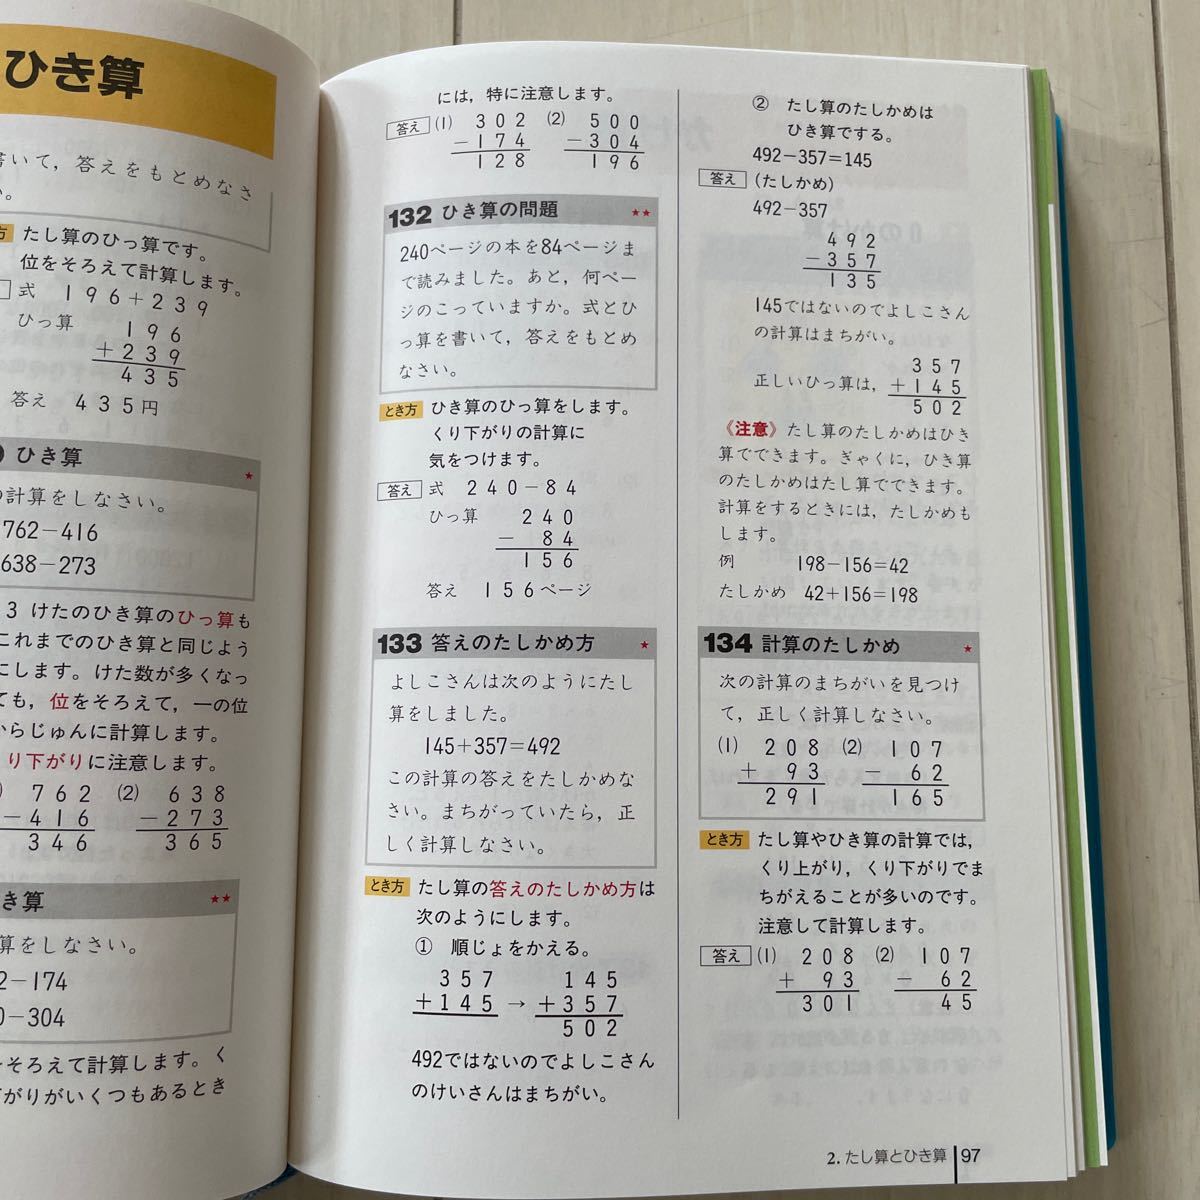 ひき算
書いて，答えをもとめなさ
い。
方 たし算のひっ算です。
位をそろえて計算します。
式 196+239
ひっ算 196
+239
435
答え 435円
ひき算 ★
計算をしなさい。
762−416
638−273
3けたのひき算のひっ算も
これまでのひき算と同じよう
にします。けた数が多くなっ
ても，位をそろえて，一の位
からじゅんに計算します。
り下がりに注意します。
762 (2) 638
−416 −273
346 365
き算 ★★
算をしなさい。
2−174
0−304
をそろえて計算します。く
下がりがいくつもあるとき
には，特に注意します。
答え (1) 302 (2) 500
−174 −304
128 196
132 ひき算の問題 ★★
240ページの本を84ページま
で読みました。あと，何ペー
ジのこっていますか。式とひ
っ算を書いて，答えをもとめ
なさい。
とき方 ひき算のひっ算をします。
くり下がりの計算に
気をつけます。
答え 式 240−84
ひっ算 240
− 84
156
答え 156ページ
133 答えのたしかめ方 ★
よしこさんは次のようにたし
算をしました。
145+357=492
この計算の答えをたしかめな
さい。まちがっていたら，正
しく計算しなさい。
とき方 たし算の答えのたしかめ方は
次のようにします。
① 順じょをかえる。
357 145
+145 → +357
502
492ではないのでよしこさん
のけいさんはまちがい。
② たし算のたしかめは
ひき算でする。
492−357=145
答え (たしかめ)
492−357
492
−357
135
145ではないのでよしこさん
の計算はまちがい。
357
正しいひっ算は， +145
502
《注意》たし算のたしかめはひき
算でできます。ぎゃくに，ひき算
のたしかめはたし算でできます。
計算をするときには，たしかめも
します。
例 198−156=42
たしかめ 42+156=198
134 計算のたしかめ ★
次の計算のまちがいを見つけ
て，正しく計算しなさい。
(1) 208 (2) 107
+ 93 − 62
291 165
とき方 たし算やひき算の計算では，
くり上がり，くり下がりでま
ちがえることが多いのです。
注意して計算します。
答え (1) 208 (2) 107
+ 93 − 62
301 45
2. たし算とひき算 97